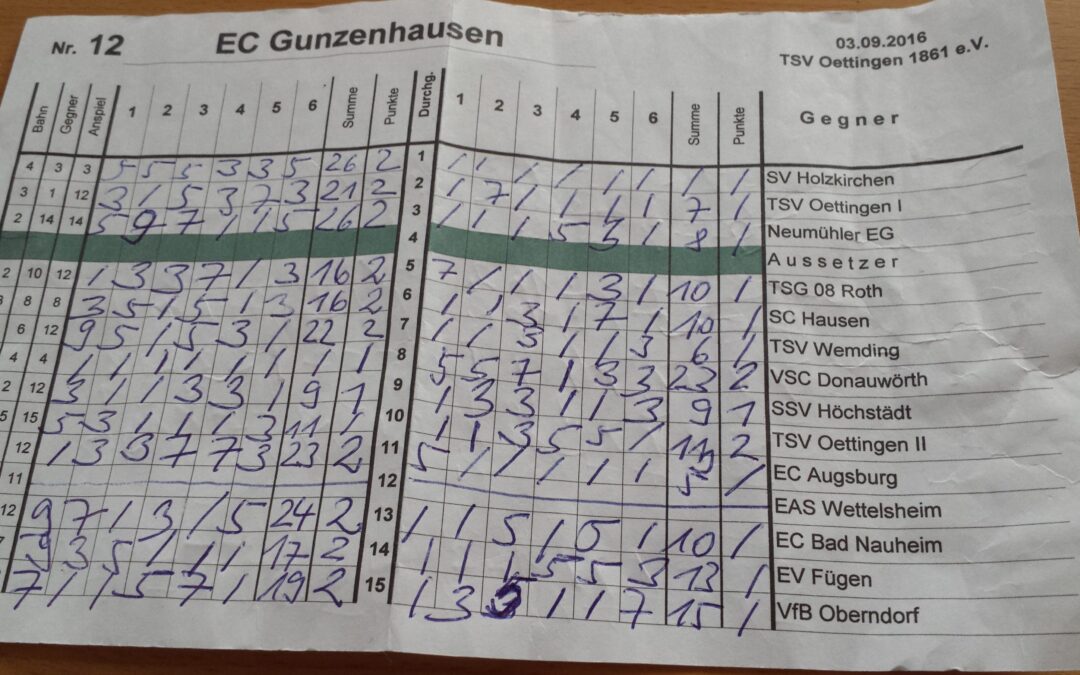 Nr. 12 EC Gunzenhausen 03.09.2016
TSV Oettingen 1861 e.V.
Bahn Gegner Anspiel 1 2 3 4 5 6 Summe Punkte Durchg. 1 2 3 4 5 6 Summe Punkte Gegner
4 3 3 5 5 5 3 3 5 26 2 1 / / / / / / / / SV Holzkirchen
3 1 12 3 / 5 3 7 3 21 2 2 / 7 / / / / 7 / TSV Oettingen I
2 14 14 5 9 7 / / 5 26 2 3 / / / 5 3 / 8 / Neumühler EG
4 Aussetzer
2 10 12 / 3 3 7 / 3 16 2 5 7 / / / 3 / 10 / TSG 08 Roth
8 8 3 5 / 5 / 3 16 2 6 / / 3 / 7 / 10 / SC Hausen
6 12 9 5 / 5 3 / 22 2 7 / / 3 / / 3 6 / TSV Wemding
4 4 / / / / / / / / 8 5 5 7 / 3 3 23 2 VSC Donauwörth
2 12 3 / / 3 3 / 9 1 9 / 3 3 / / 3 9 1 SSV Höchstädt
5 15 5 3 / / / 3 11 / 10 / / 3 5 5 / 2 TSV Oettingen II
12 / 3 3 7 7 3 23 2 11 5 / / / / / / EC Augsburg
11 12 EAS Wettelsheim
12 9 7 / 3 / 5 24 2 13 / / 5 / 5 / 10 / EC Bad Nauheim
9 3 5 / / / 17 2 14 / / / 5 5 3 13 / EV Fügen
7 / / 5 7 / 19 2 15 / 3 / / 7 15 / VfB Oberndorf